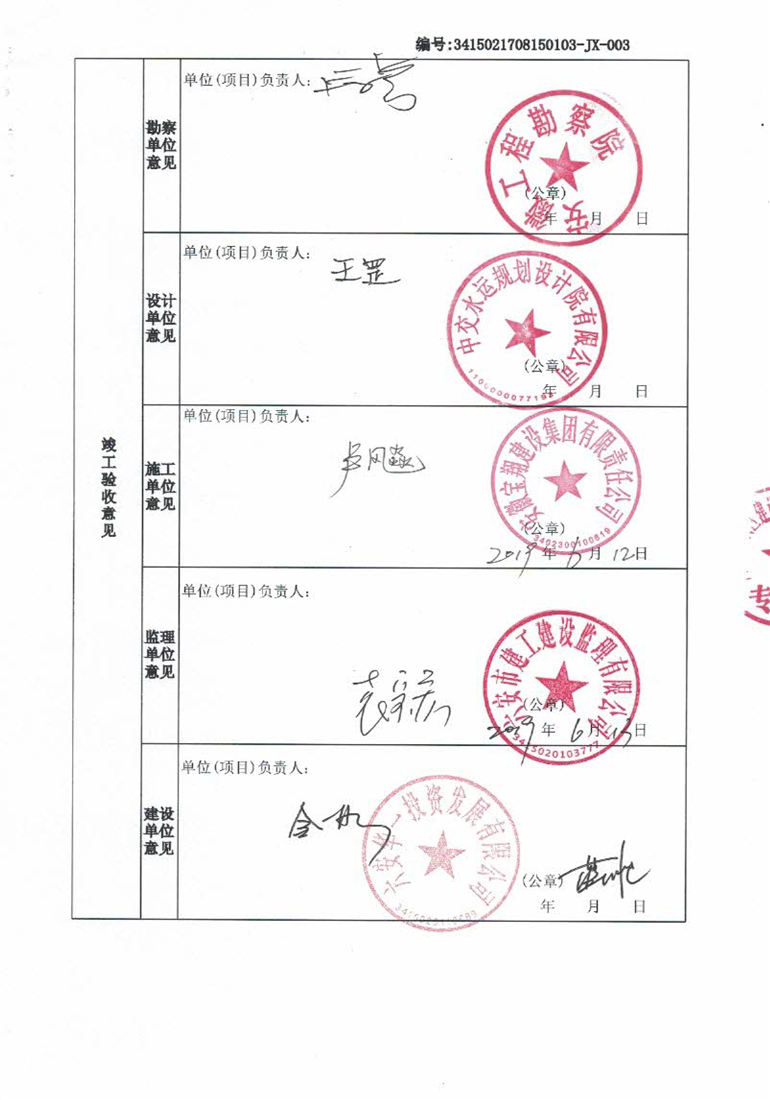 编号:3415021708150103-JX-003
竣工验收意见
勘察
单位
意见
单位(项目)负责人:
安徽工程勘察院
(公章)
年 月 日
设计
单位
意见
单位(项目)负责人:
王罡
中交水运规划设计院有限公司
(公章)
年 月 日
施工
单位
意见
单位(项目)负责人:
安徽宝翔建设集团有限责任公司
(公章)
3402300100619
2019年6月12日
监理
单位
意见
单位(项目)负责人:
六安市建工建设监理有限公司
(公章)
2019年6月13日
3415020103777
建设
单位
意见
单位(项目)负责人:
六安华一投资发展有限公司
(公章)
年 月 日
专